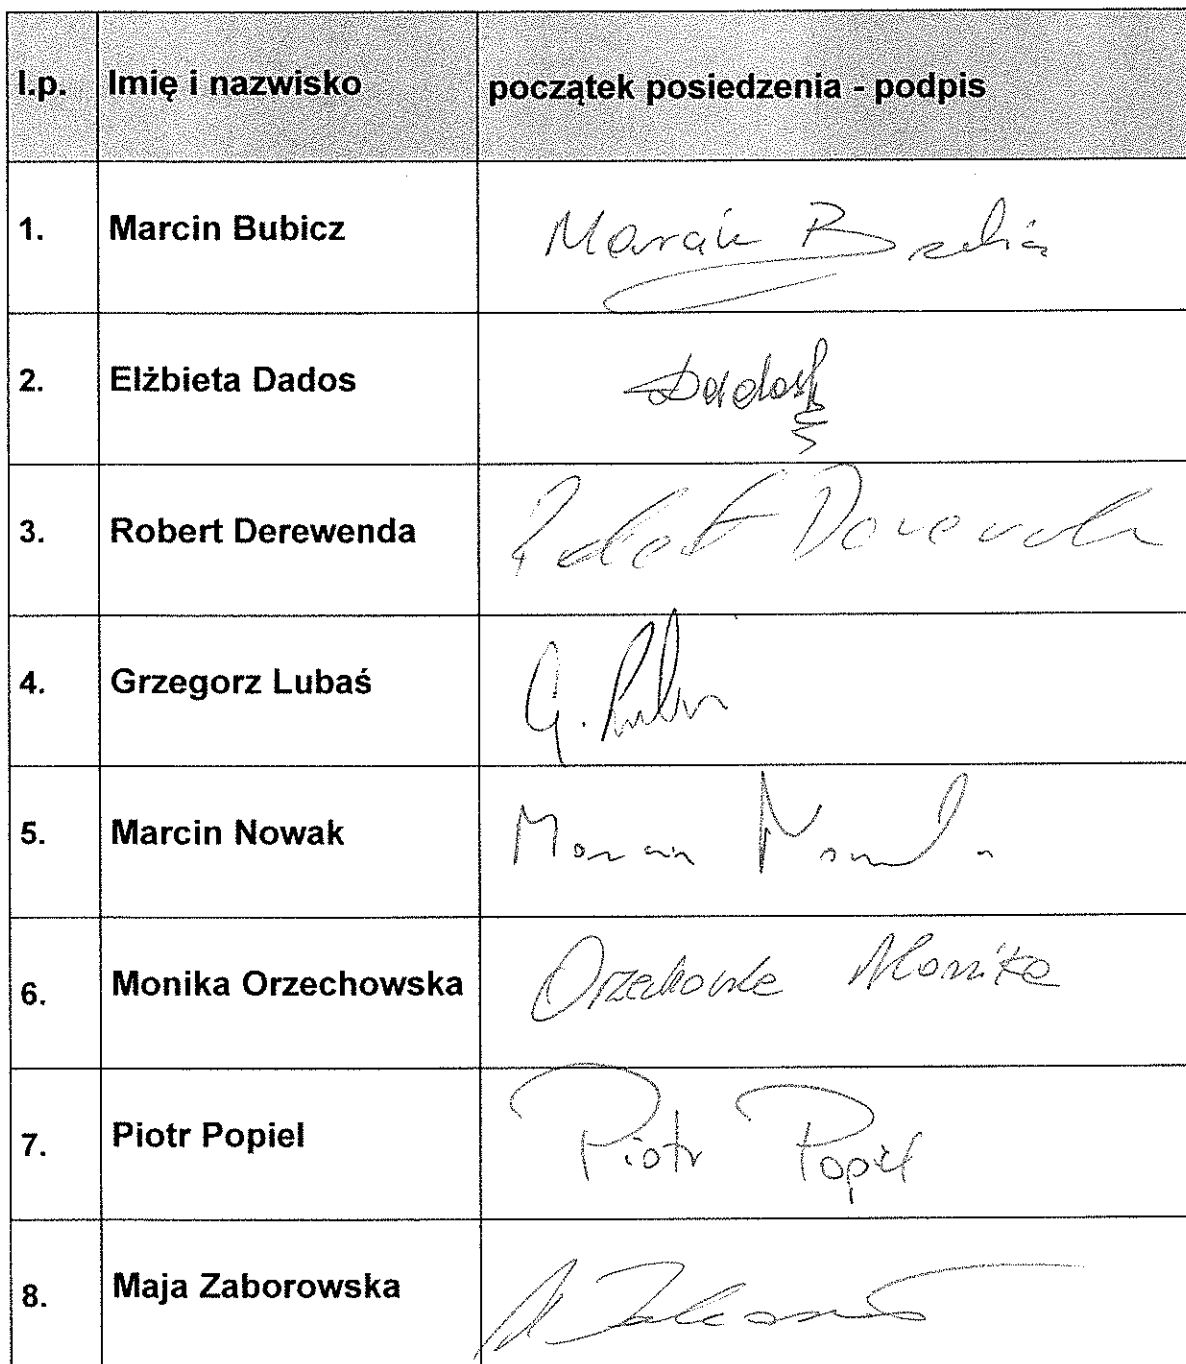 l.p. Imię i nazwisko początek posiedzenia - podpis
1. Marcin Bubicz Marcin
2. Elżbieta Dados Dados
3. Robert Derewenda
4. Grzegorz Lubaś G.
5. Marcin Nowak Marcin
6. Monika Orzechowska Orzechowska Monika
7. Piotr Popiel Piotr Popiel
8. Maja Zaborowska